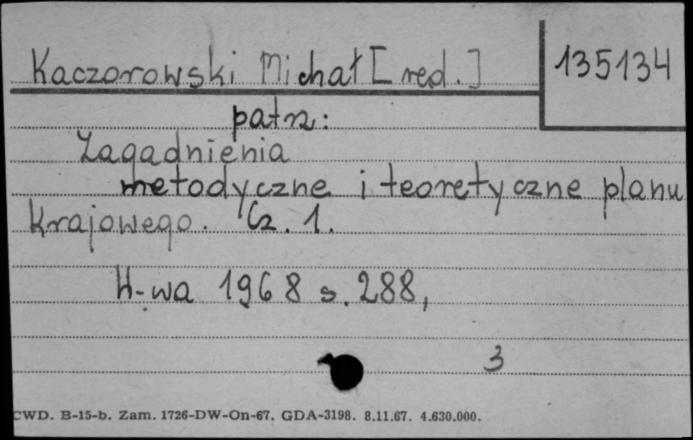 Kaczorowski Michał [red.] 135134
patrz:
Zagadnienia
metodyczne i teoretyczne planu
krajowego. Cz. 1.
W-wa 1968 s. 288,
3
CWD. B-15-b. Zam. 1726-DW-On-67. GDA-3198. 8.11.67. 4.630.000.